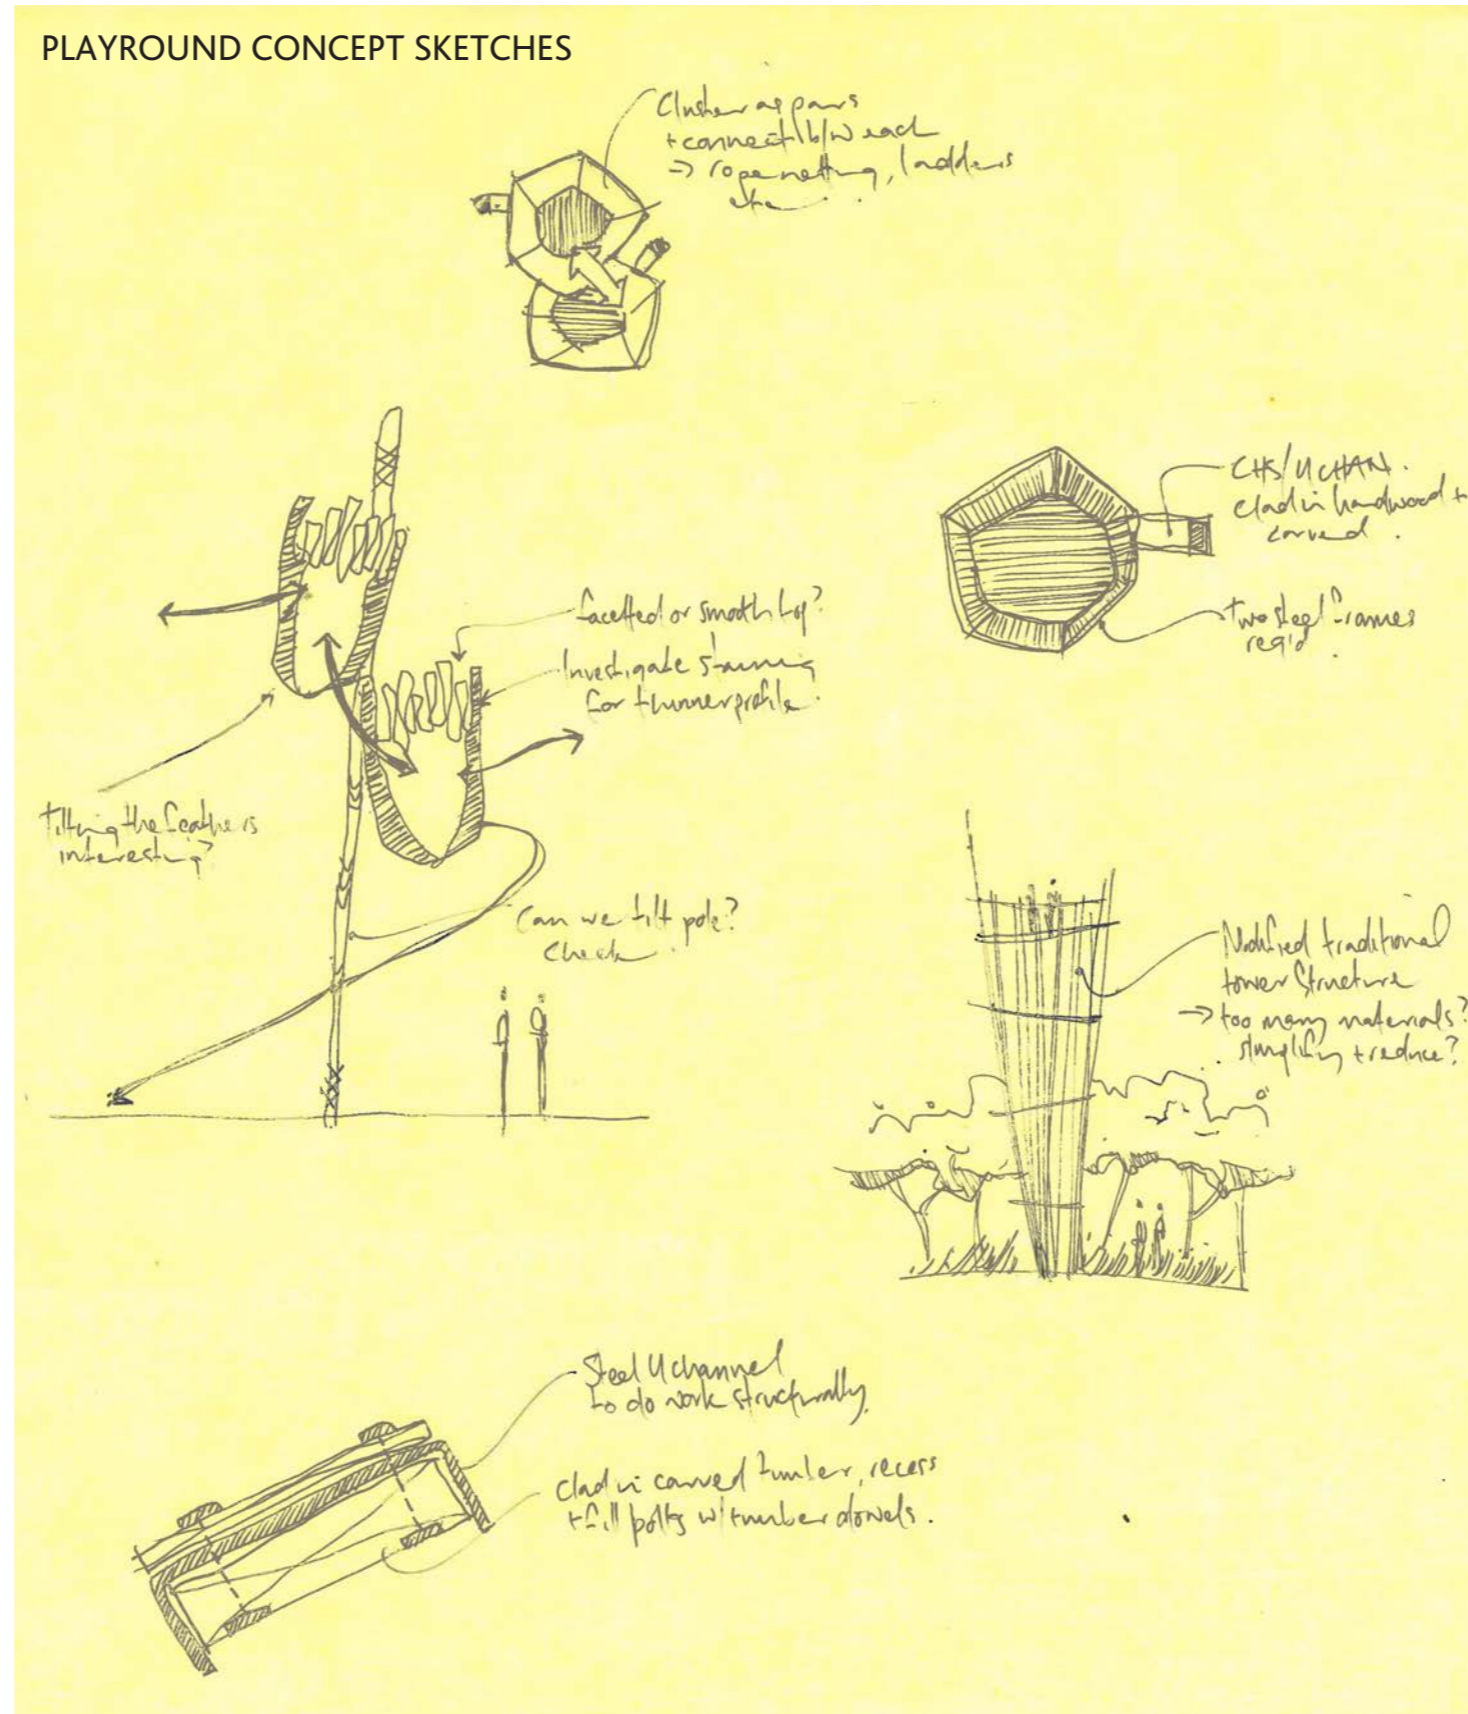 PLAYROUND CONCEPT SKETCHES
Cluster as pairs
+ connect b/w each
→ rope netting, ladders
etc.
CHS/UCHAN.
clad in hardwood +
carved.
Two steel frames
req'd.
facetted or smooth top?
Investigate
for thinner profile.
Tilting the feathers
interesting?
Can we tilt pole?
Check.
Modified traditional
tower structure
→ too many materials?
simplify + reduce?
Steel U channel
to do work structurally.
Clad in carved timber, recess
+ fill bolts w/ timber dowels.